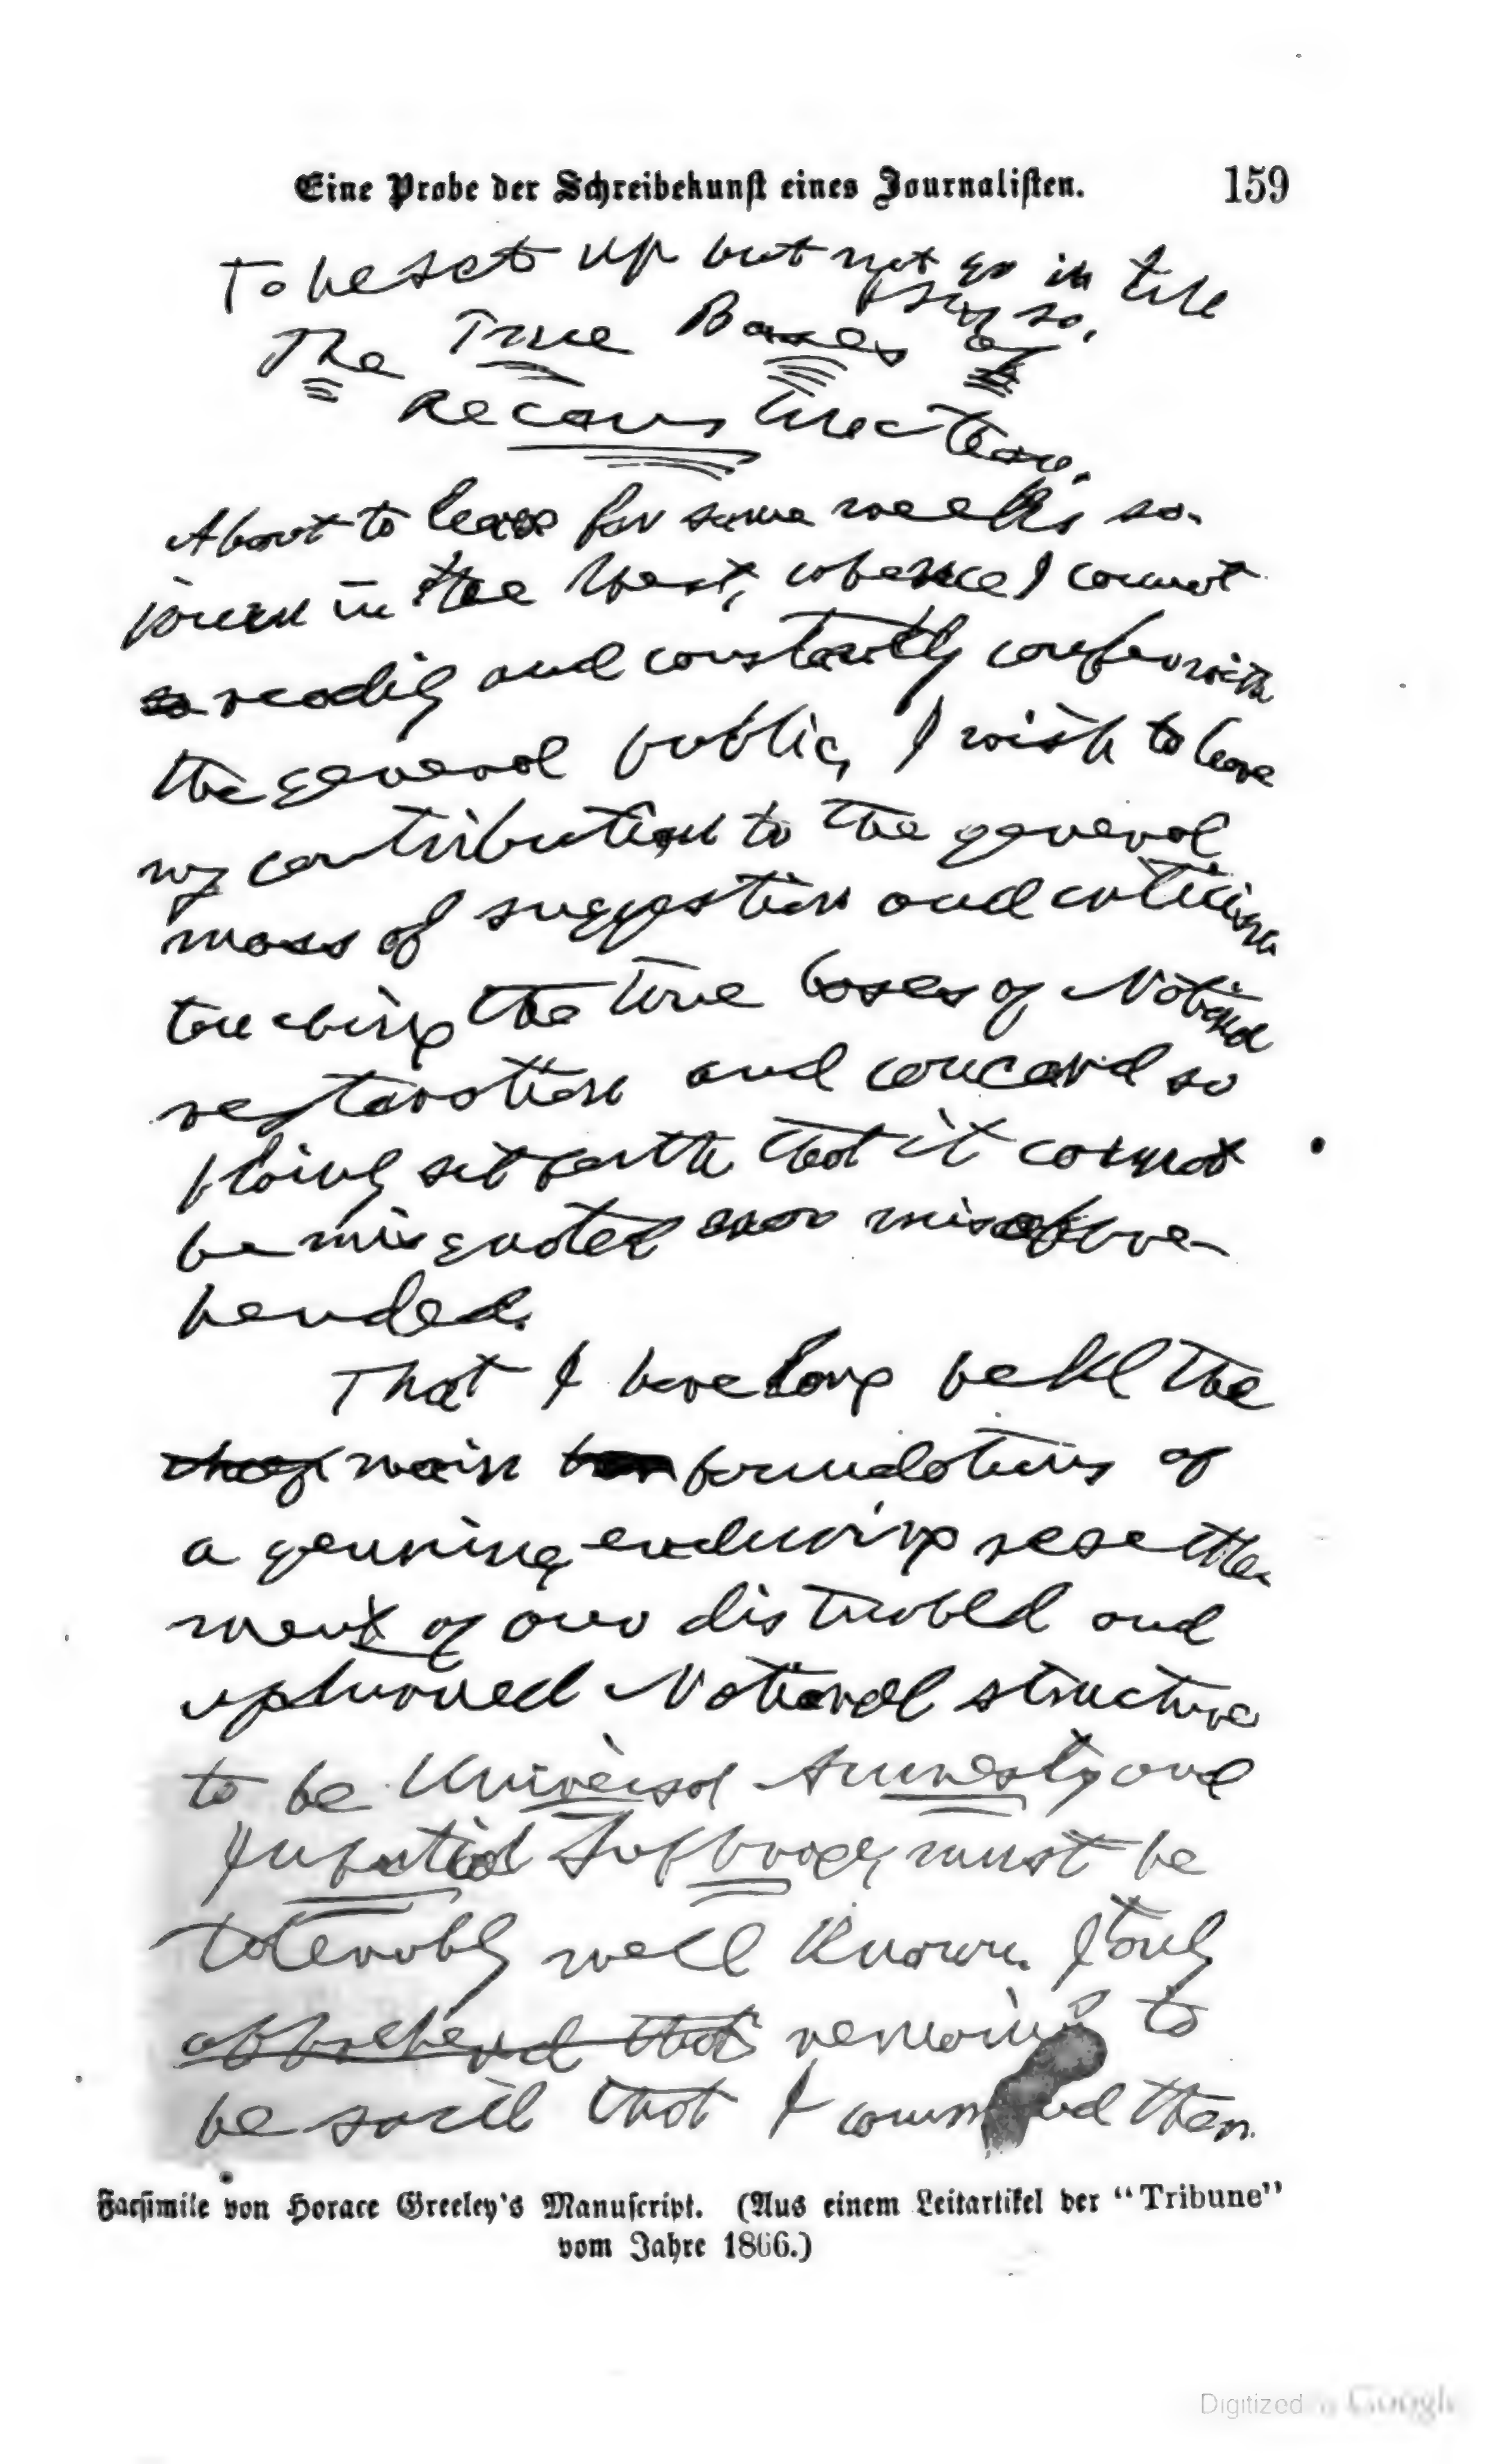 Eine Probe der Schreibekunst eines Journalisten. 159
To be set up but not go in till
I say so.
The True Bases of
Reconstruction.
About to leave for some weeks' so-
journ in the West, whence I cannot
so readily and constantly confer with
the general public, I wish to leave
my contribution to the general
mass of suggestion and criticism
touching the true bases of National
restoration and concord so
plainly set forth that it cannot
be misquoted nor misappre-
hended.
That I have long held the
main foundations of
a genuine, enduring resettle-
ment of our disturbed and
upturned National structure
to be Universal Amnesty and
Impartial Suffrage, must be
tolerably well known. It only
apprehend that remains to
be said that I commend them
Facsimile von Horace Greeley's Manuscript. (Aus einem Leitartikel der "Tribune"
vom Jahre 1866.)
Digitized by Google